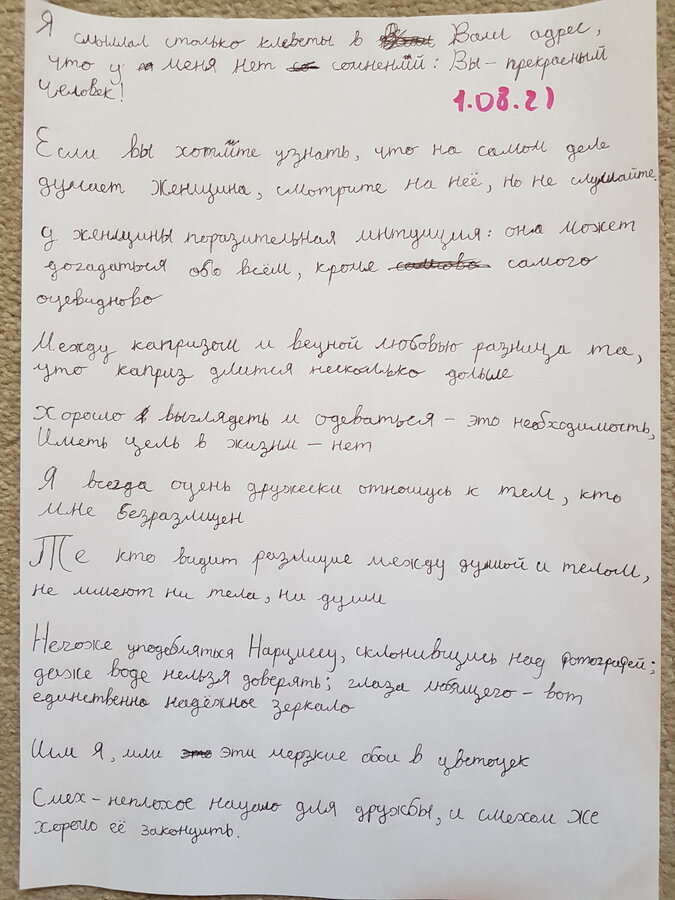 Я слышал столько клеветы в Ваш адрес,
что у меня нет сомнений: Вы - прекрасный
человек!
1.08.21
Если вы хотите узнать, что на самом деле
думает женщина, смотрите на неё, но не слушайте.
У женщины поразительная интуиция: она может
догадаться обо всём, кроме самого
очевидново
Между капризом и вечной любовью разница та,
что каприз длится несколько дольше
Хорошо выглядеть и одеваться - это необходимость,
Иметь цель в жизни - нет
Я всегда очень дружески отношусь к тем, кто
мне безразличен
Те кто видит различие между душой и телом,
не имеют ни тела, ни души
Негоже уподобляться Нарциссу, склонившись над фотографией;
даже воде нельзя доверять; глаза любящего - вот
единственно надёжное зеркало
Или я, или эти мерзкие обои в цветочек
Смех - неплохое начало для дружбы, и смехом же
хорошо её закончить.